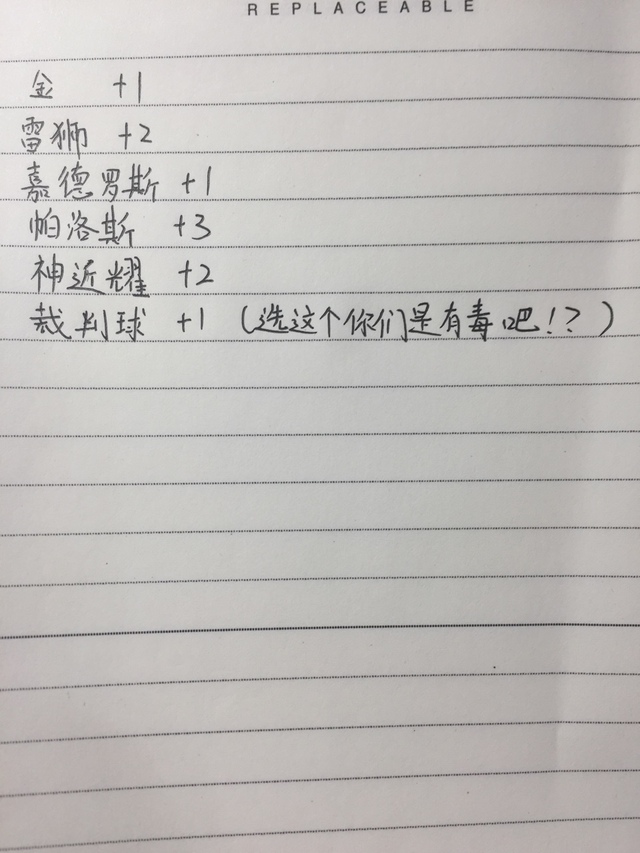 REPLACEABLE
金 +1
雷狮 +2
嘉德罗斯 +1
帕洛斯 +3
神近耀 +2
裁判球 +1 (选这个你们是有毒吧!?)